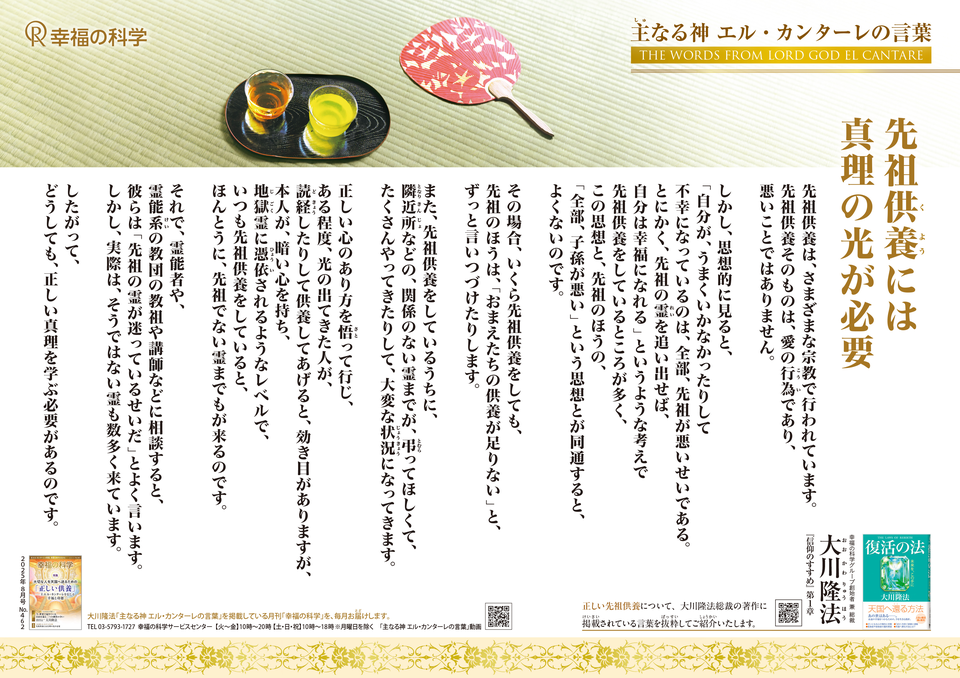 幸福の科学
主なる神 エル・カンターレの言葉
THE WORDS FROM LORD GOD EL CANTARE
先祖供養には
真理の光が必要
先祖供養は、さまざまな宗教で行われています。
先祖供養そのものは、愛の行為であり、
悪いことではありません。
しかし、思想的に見ると、
「自分が、うまくいかなかったりして
不幸になっているのは、全部、先祖が悪いせいである。
とにかく、先祖の霊を追い出せば、
自分は幸福になれる」というような考えで
先祖供養をしているところが多く、
この思想と、先祖のほうの、
「全部、子孫が悪い」という思想とが同通すると、
よくないのです。
その場合、いくら先祖供養をしても、
先祖のほうは、「おまえたちの供養が足りない」と、
ずっと言いつづけたりします。
また、先祖供養をしているうちに、
隣近所などの、関係のない霊までが、弔ってほしくて、
たくさんやってきたりして、大変な状況になってきます。
正しい心のあり方を悟って行じ、
ある程度、光の出てきた人が、
読経したりして供養してあげると、効き目がありますが、
本人が、暗い心を持ち、
地獄霊に憑依されるようなレベルで、
いつも先祖供養をしていると、
ほんとうに、先祖でない霊までもが来るのです。
それで、霊能者や、
霊能系の教団の教祖や講師などに相談すると、
彼らは「先祖の霊が迷っているせいだ」とよく言います。
しかし、実際は、そうではない霊も数多く来ています。
したがって、
どうしても、正しい真理を学ぶ必要があるのです。
幸福の科学グループ創始者 兼 総裁
大川隆法
『信仰のすすめ』第1章
復活の法
大川隆法
天国へ還る方法
正しい先祖供養について、大川隆法総裁の著作に
掲載されている言葉を抜粋してご紹介いたします。
2025年 8月号 No.462
幸福の科学
正しい供養
大川隆法「主なる神 エル・カンターレの言葉」を掲載している月刊「幸福の科学」を、毎月お届けします。
TEL 03-5793-1727 幸福の科学サービスセンター 【火〜金】10時〜20時【土・日・祝】10時〜18時 ※月曜日を除く 「主なる神 エル・カンターレの言葉」動画